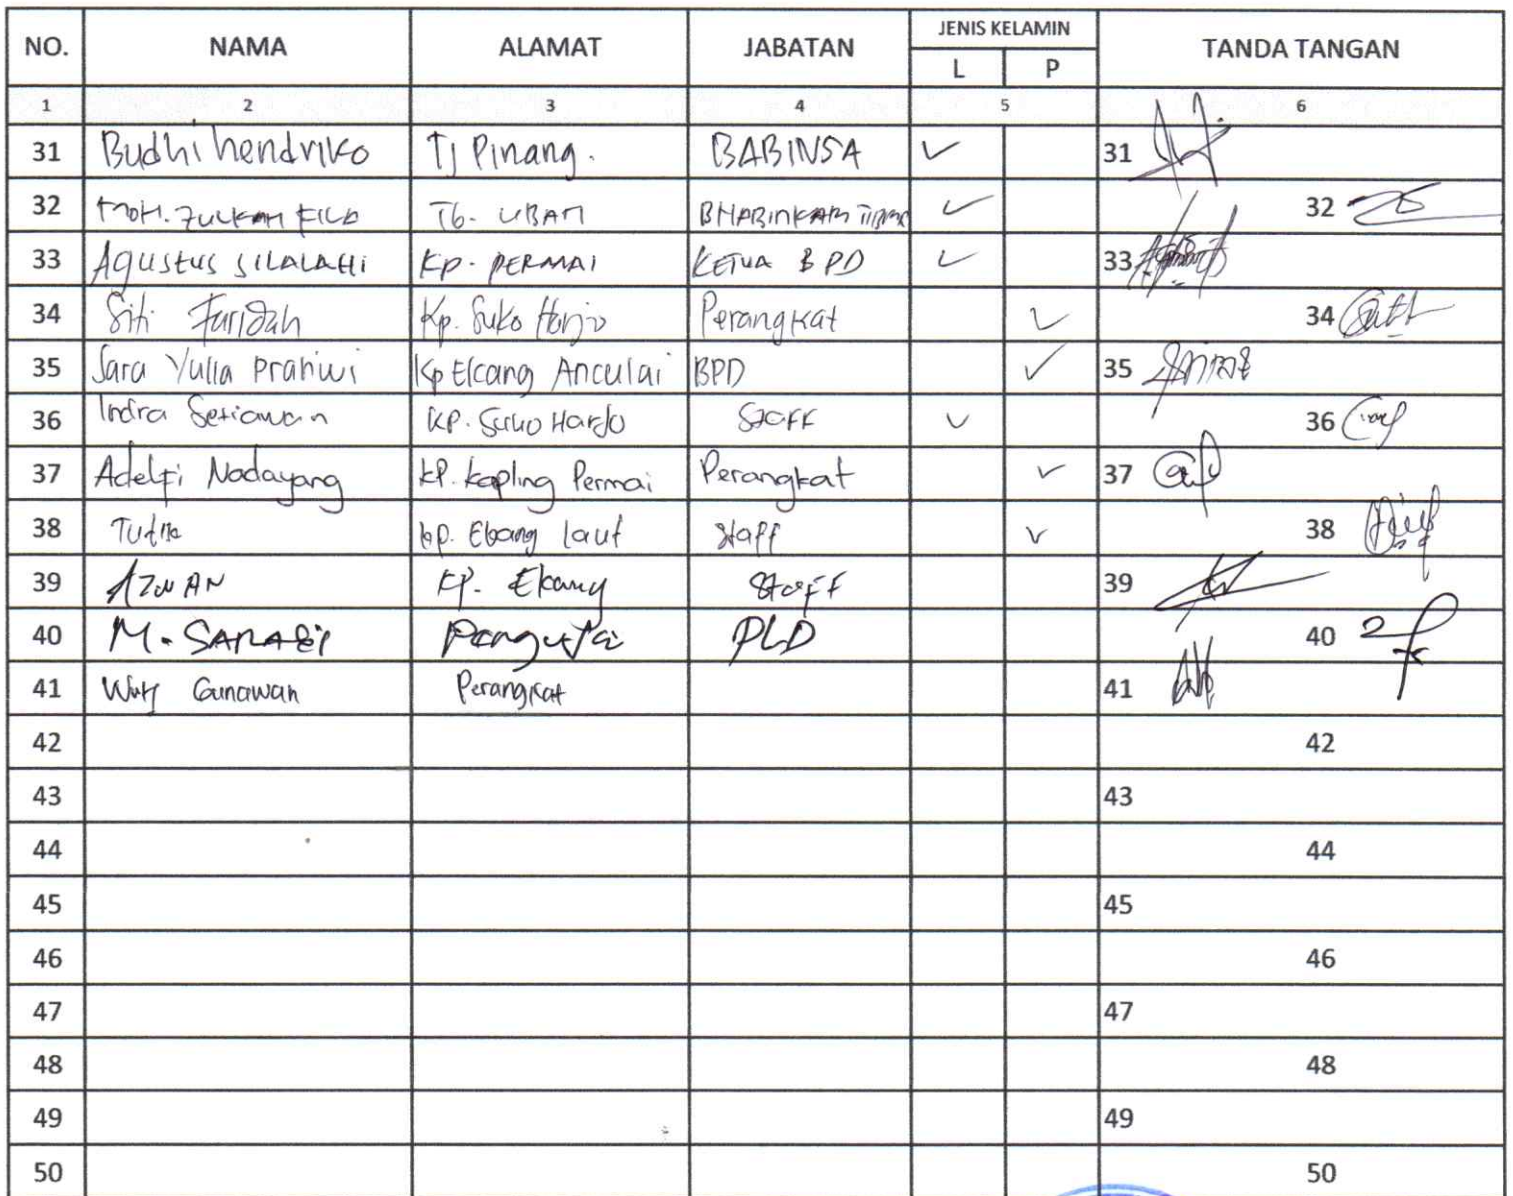 NO. NAMA ALAMAT JABATAN JENIS KELAMIN TANDA TANGAN
L P
1 2 3 4 5 6
31 Budhi hendriko Tj Pinang. BABINSA ✓ 31
32 MOH. Tg. UBAN ✓ 32
33 Agustus SILALAHI KP. PERMAI KETUA BPD ✓ 33
34 Siti Faridah Kp. Suko Harjo Perangkat ✓ 34
35 Sara Yulia Pratiwi Kp Ekang Anculai BPD ✓ 35
36 Indra Setiawan KP. Suko Harjo Staff ✓ 36
37 Adelfi Nadayang KP. Kapling Permai Perangkat ✓ 37
38 Tutik kp. Ekang laut staff ✓ 38
39 AZWAN KP. Ekang Staff 39
40 M. PLD 40
41 Gunawan Perangkat 41
42 42
43 43
44 44
45 45
46 46
47 47
48 48
49 49
50 50